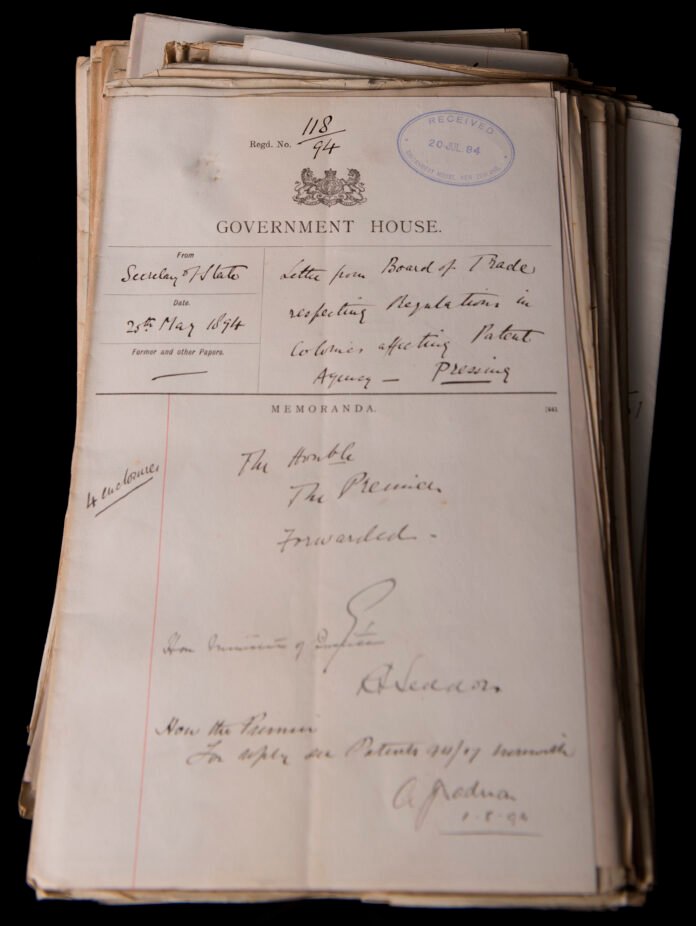 Regd. No. 118/94
RECEIVED
20 JUL. 94
GOVERNMENT HOUSE, NEW ZEALAND.
GOVERNMENT HOUSE.
From
Secretary of State
Date.
25th May 1894
Former and other Papers.
Letter from Board of Trade
respecting Regulations in
Colonies affecting Patent
Agency — Pressing
MEMORANDA.
4 enclosures
The Honble
The Premier
Forwarded -
G.
Hon Minister of Justice
R Seddon
Hon the Premier
For reply see Patents herewith
1-8-94